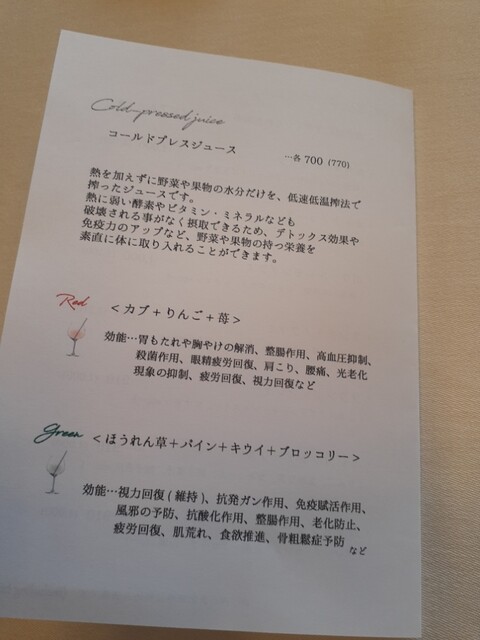 Cold-pressed juice
コールドプレスジュース
…各 700 (770)
熱を加えずに野菜や果物の水分だけを、低速低温搾法で
搾ったジュースです。
熱に弱い酵素やビタミン・ミネラルなども
破壊される事がなく摂取できるため、デトックス効果や
免疫力のアップなど、野菜や果物の持つ栄養を
素直に体に取り入れることができます。
Red
＜カブ＋りんご＋苺＞
効能…胃もたれや胸やけの解消、整腸作用、高血圧抑制、
殺菌作用、眼精疲労回復、肩こり、腰痛、光老化
現象の抑制、疲労回復、視力回復など
Green
＜ほうれん草＋パイン＋キウイ＋ブロッコリー＞
効能…視力回復(維持)、抗発ガン作用、免疫賦活作用、
風邪の予防、抗酸化作用、整腸作用、老化防止、
疲労回復、肌荒れ、食欲推進、骨粗鬆症予防
など